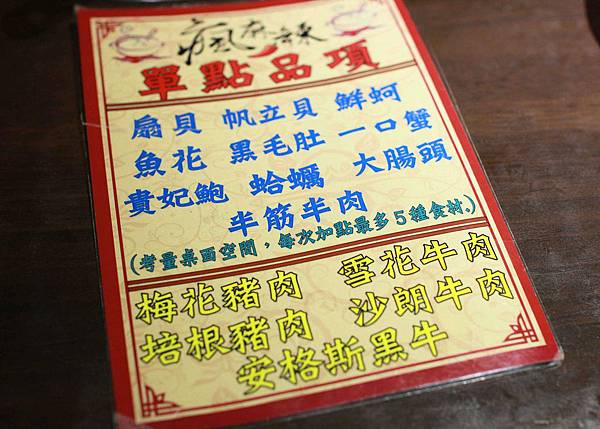 瘋麻辣
單點品項
扇貝 帆立貝 鮮蚵
魚花 黑毛肚 一口蟹
貴妃鮑 蛤蠣 大腸頭
半筋半肉
(考量桌面空間，每次加點最多5種食材.)
梅花豬肉 雪花牛肉
培根豬肉 沙朗牛肉
安格斯黑牛